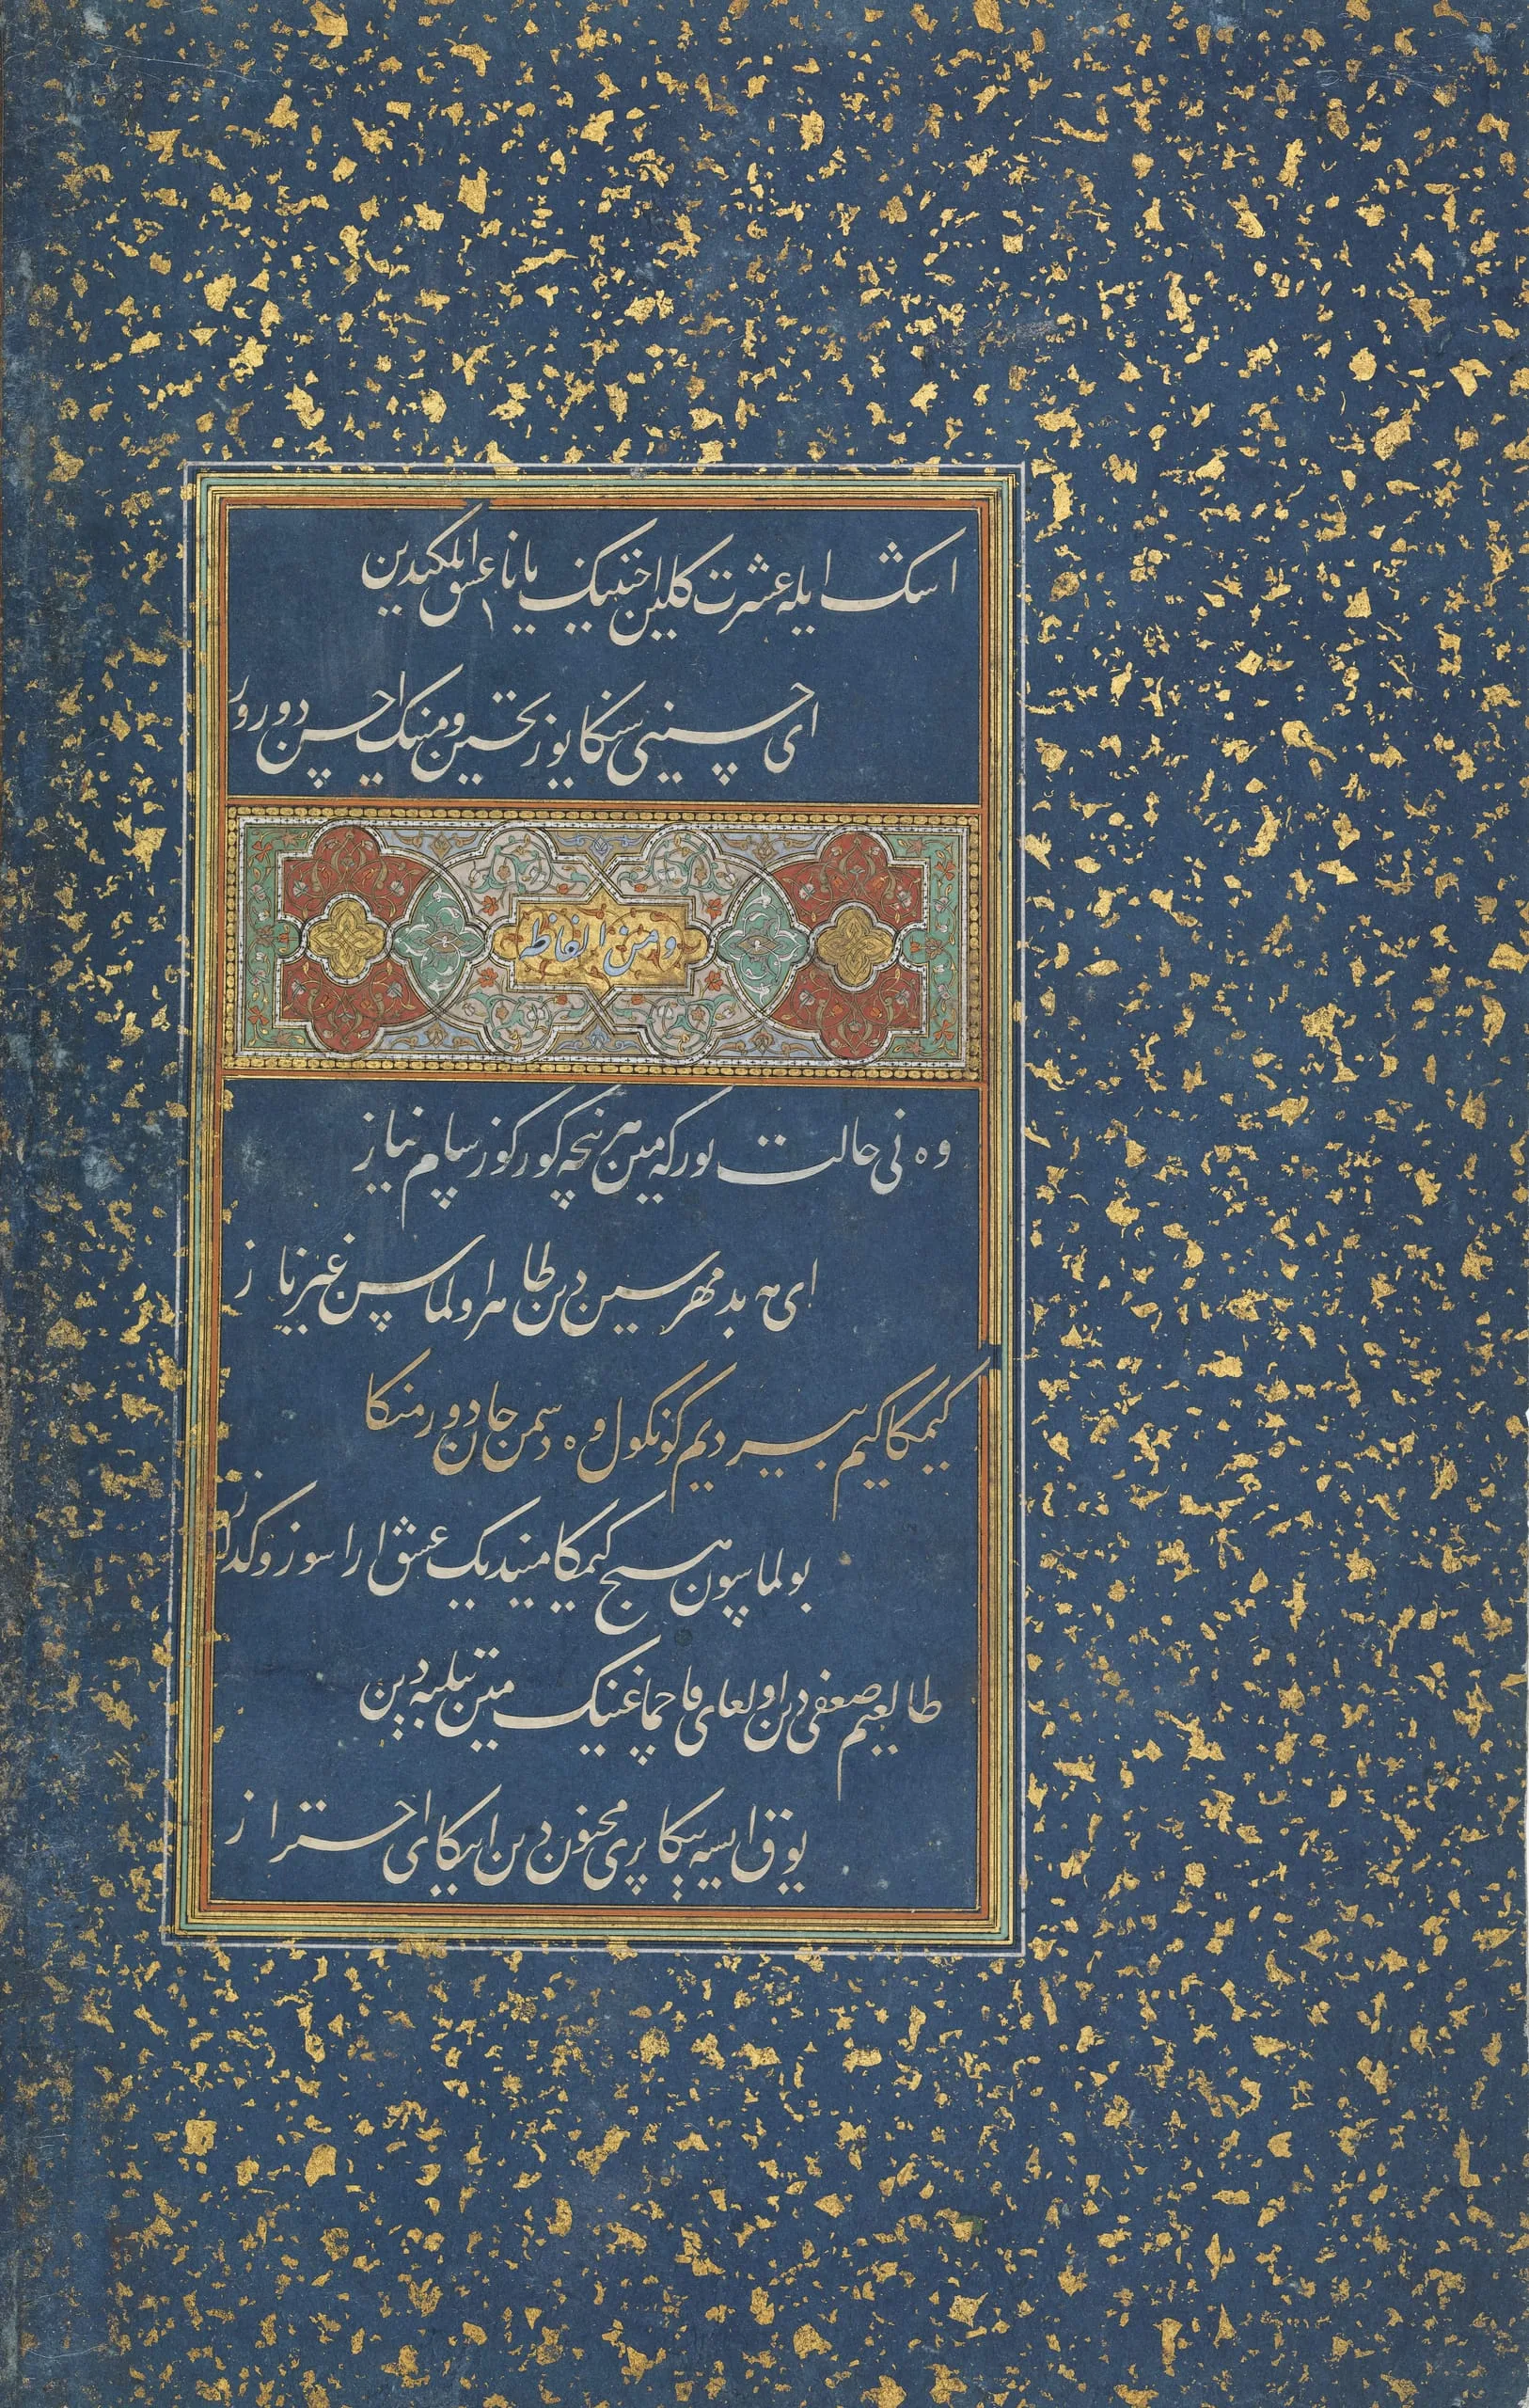 اشک ایله عشرت کلین اختنینک یانا عشق ایلکیدین
ای حسینی سنکا یوز تحسین و منک احسن دورور
ومن الفاظه
وه نی حالت تورکه مین هر نیچه کورکوزسام نیاز
ای بدمهر سین دین ظاهر اولماس غیر ناز
کیمکا کیم بیردیم کونکول وه دشمن جان دور منکا
بولماسون هیچ کیمکا میندیک عشق ارا سوز و کداز
طالعیم ضعفی دین اولغای قاچماغینک مین تیلبه دین
یوق ایسه نیکا پری مجنون دین ایتکای احتراز